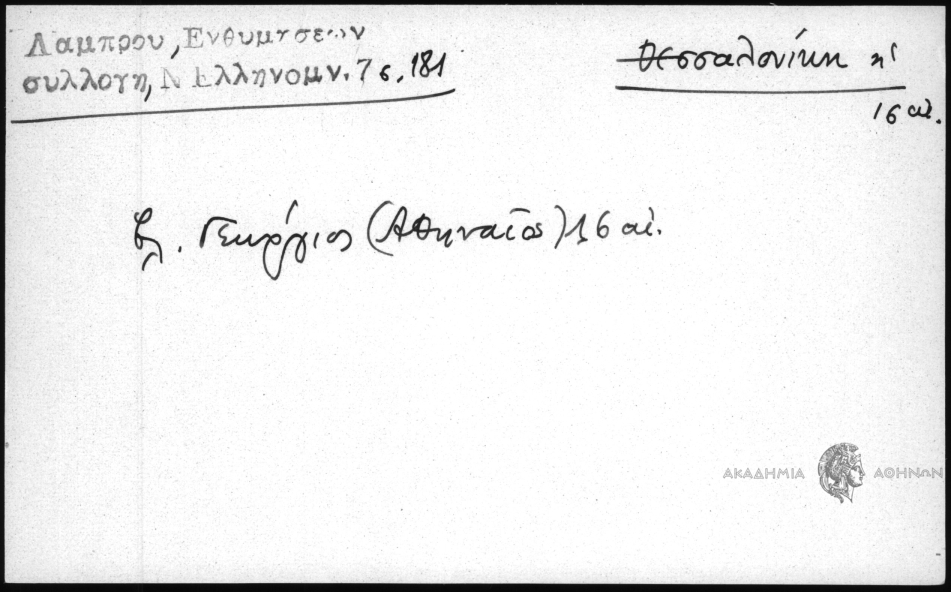 Λαμπρου, Ενθυμησεων
συλλογη, Ν Ελληνομν. 7 σ. 181
Θεσσαλονίκη ἡ
16 αἰ.
βλ. Γεώργιος (Ἀθηναῖος) 16 αἰ.
ΑΚΑΔΗΜΙΑ ΑΘΗΝΩΝ